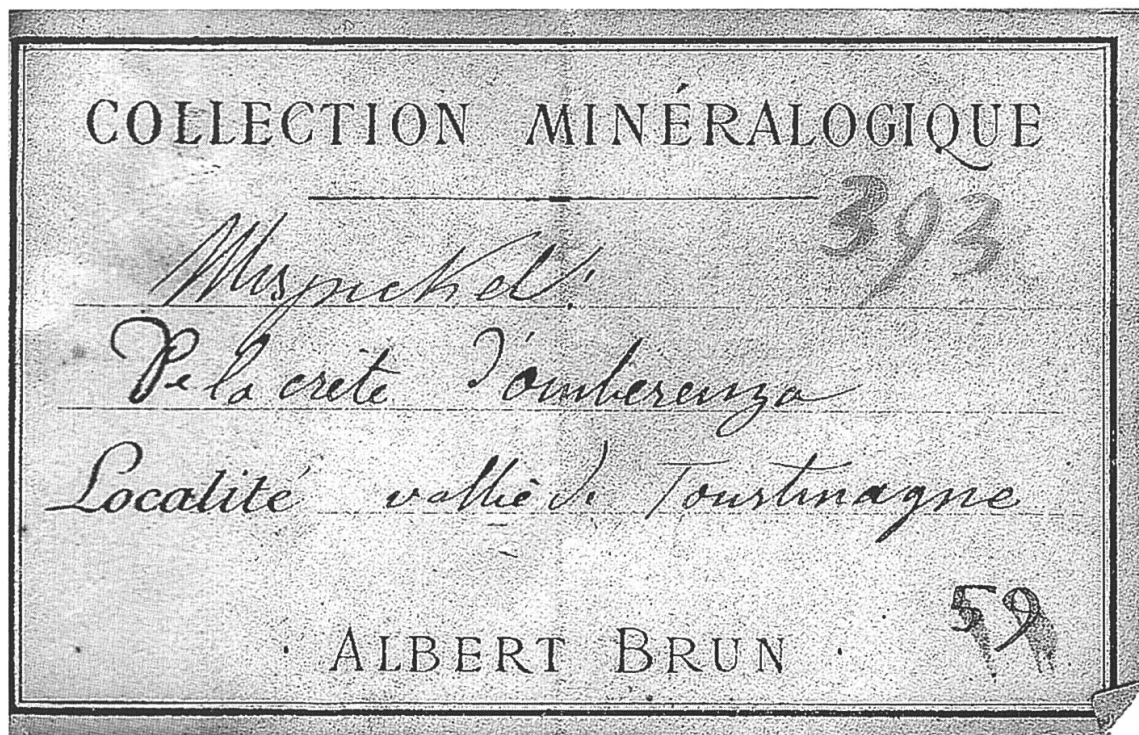 COLLECTION MINÉRALOGIQUE
393
Mispickel.
De la crête d'omberenza
Localité vallée de Tourtmagne
59
· ALBERT BRUN ·